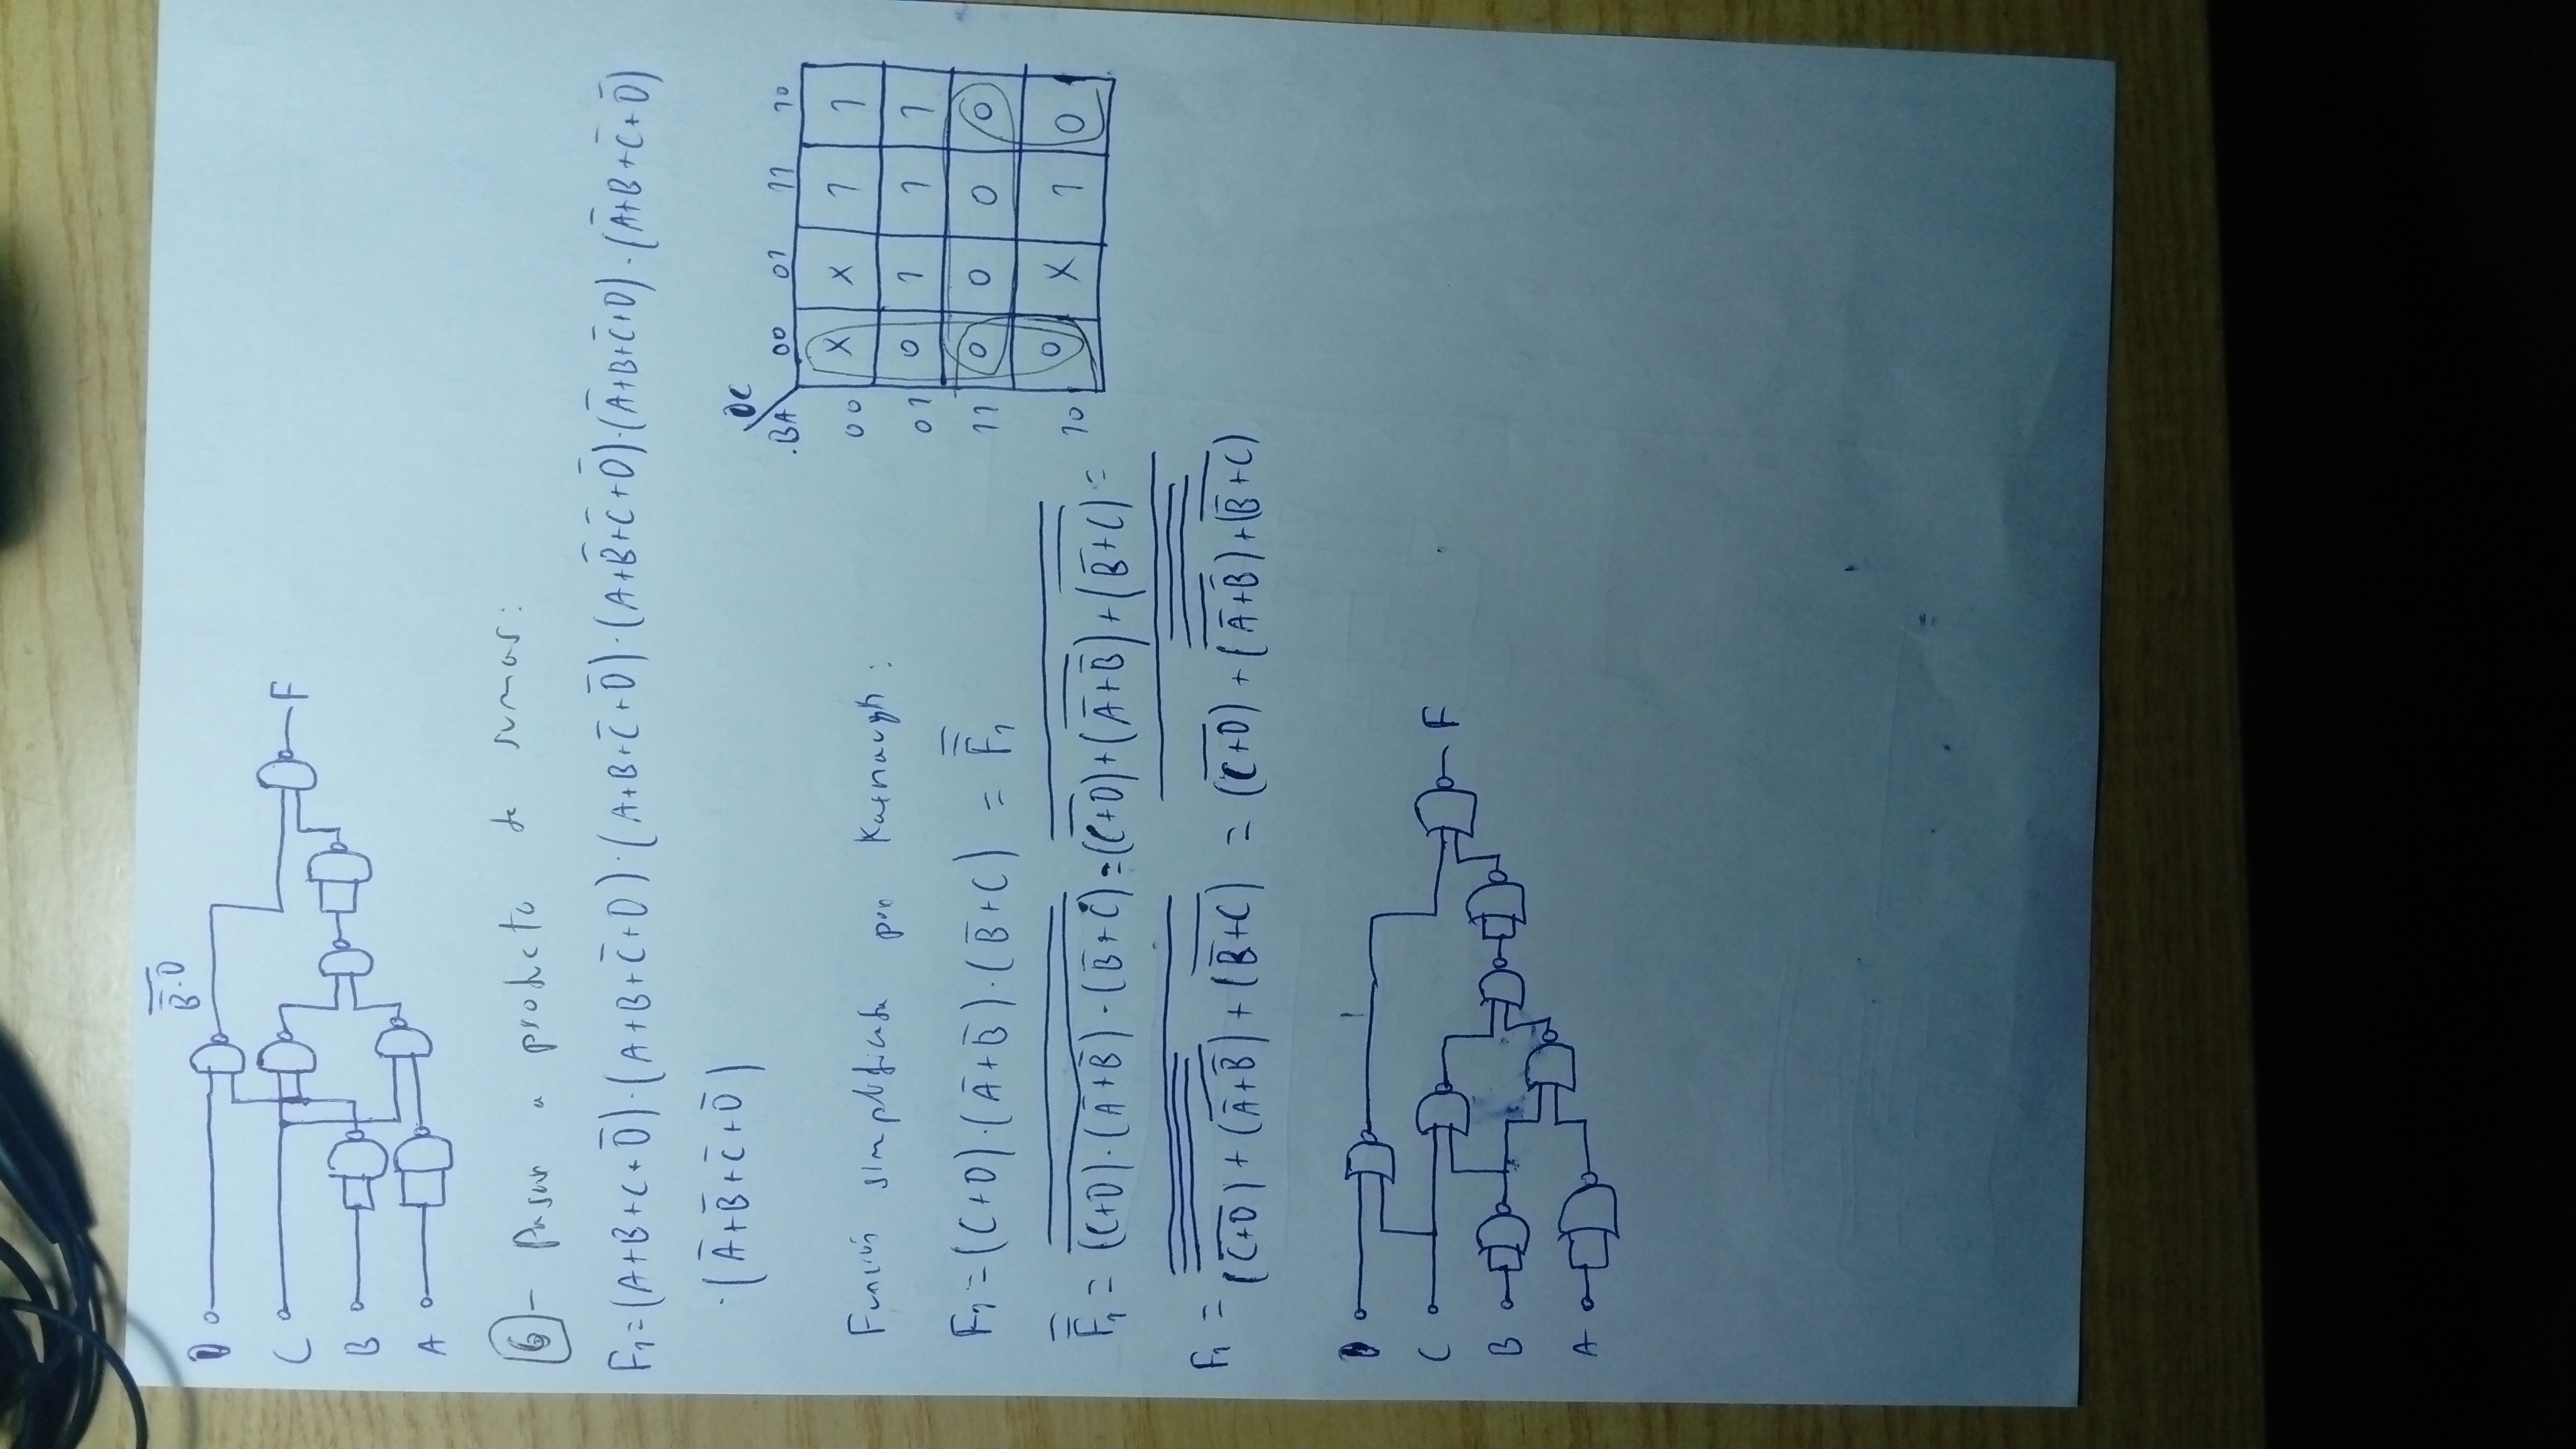 B̅·D
D
C
B
A
F
6 - Pasar a producto de sumas:
F₁=(A+B+C+D̅)·(A+B+C̅+D)·(A+B+C̅+D̅)·(A+B̅+C̅+D̅)·(A̅+B+C̅+D)·(A̅+B+C̅+D̅)
·(A̅+B̅+C̅+D̅)
DC
BA 00 01 11 10
00 X X 1 1
01 0 1 1 1
11 0 0 0 0
10 0 X 1 0
Función simplificada por Karnaugh:
F₁=(C+D)·(A̅+B̅)·(B̅+C) = F̿₁
F̿₁ = (C+D)·(A̅+B̅)·(B̅+C) = (C+D)+(A̅+B̅)+(B̅+C) =
F₁ = (C+D)+(A̅+B̅)+(B̅+C) = (C+D)+(A̅+B̅)+(B̅+C)
D
C
B
A
F